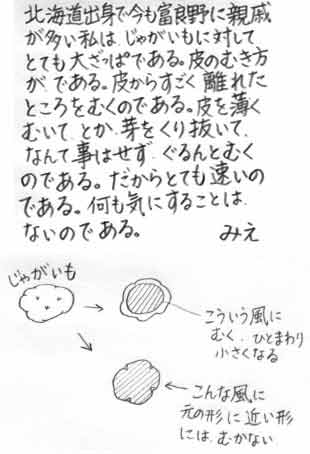 北海道出身で今も富良野に親戚
が多い私は、じゃがいもに対して
とても大ざっぱである。皮のむき方
が、である。皮からすごく離れた
ところをむくのである。皮を薄く
むいて、とか、芽をくり抜いて、
なんて事はせず、ぐるんとむく
のである。だからとても速いの
である。何も気にすることは、
ないのである。 みえ
じゃがいも
こういう風に
むく、ひとまわり
小さくなる
こんな風に
元の形に近い形
には、むかない